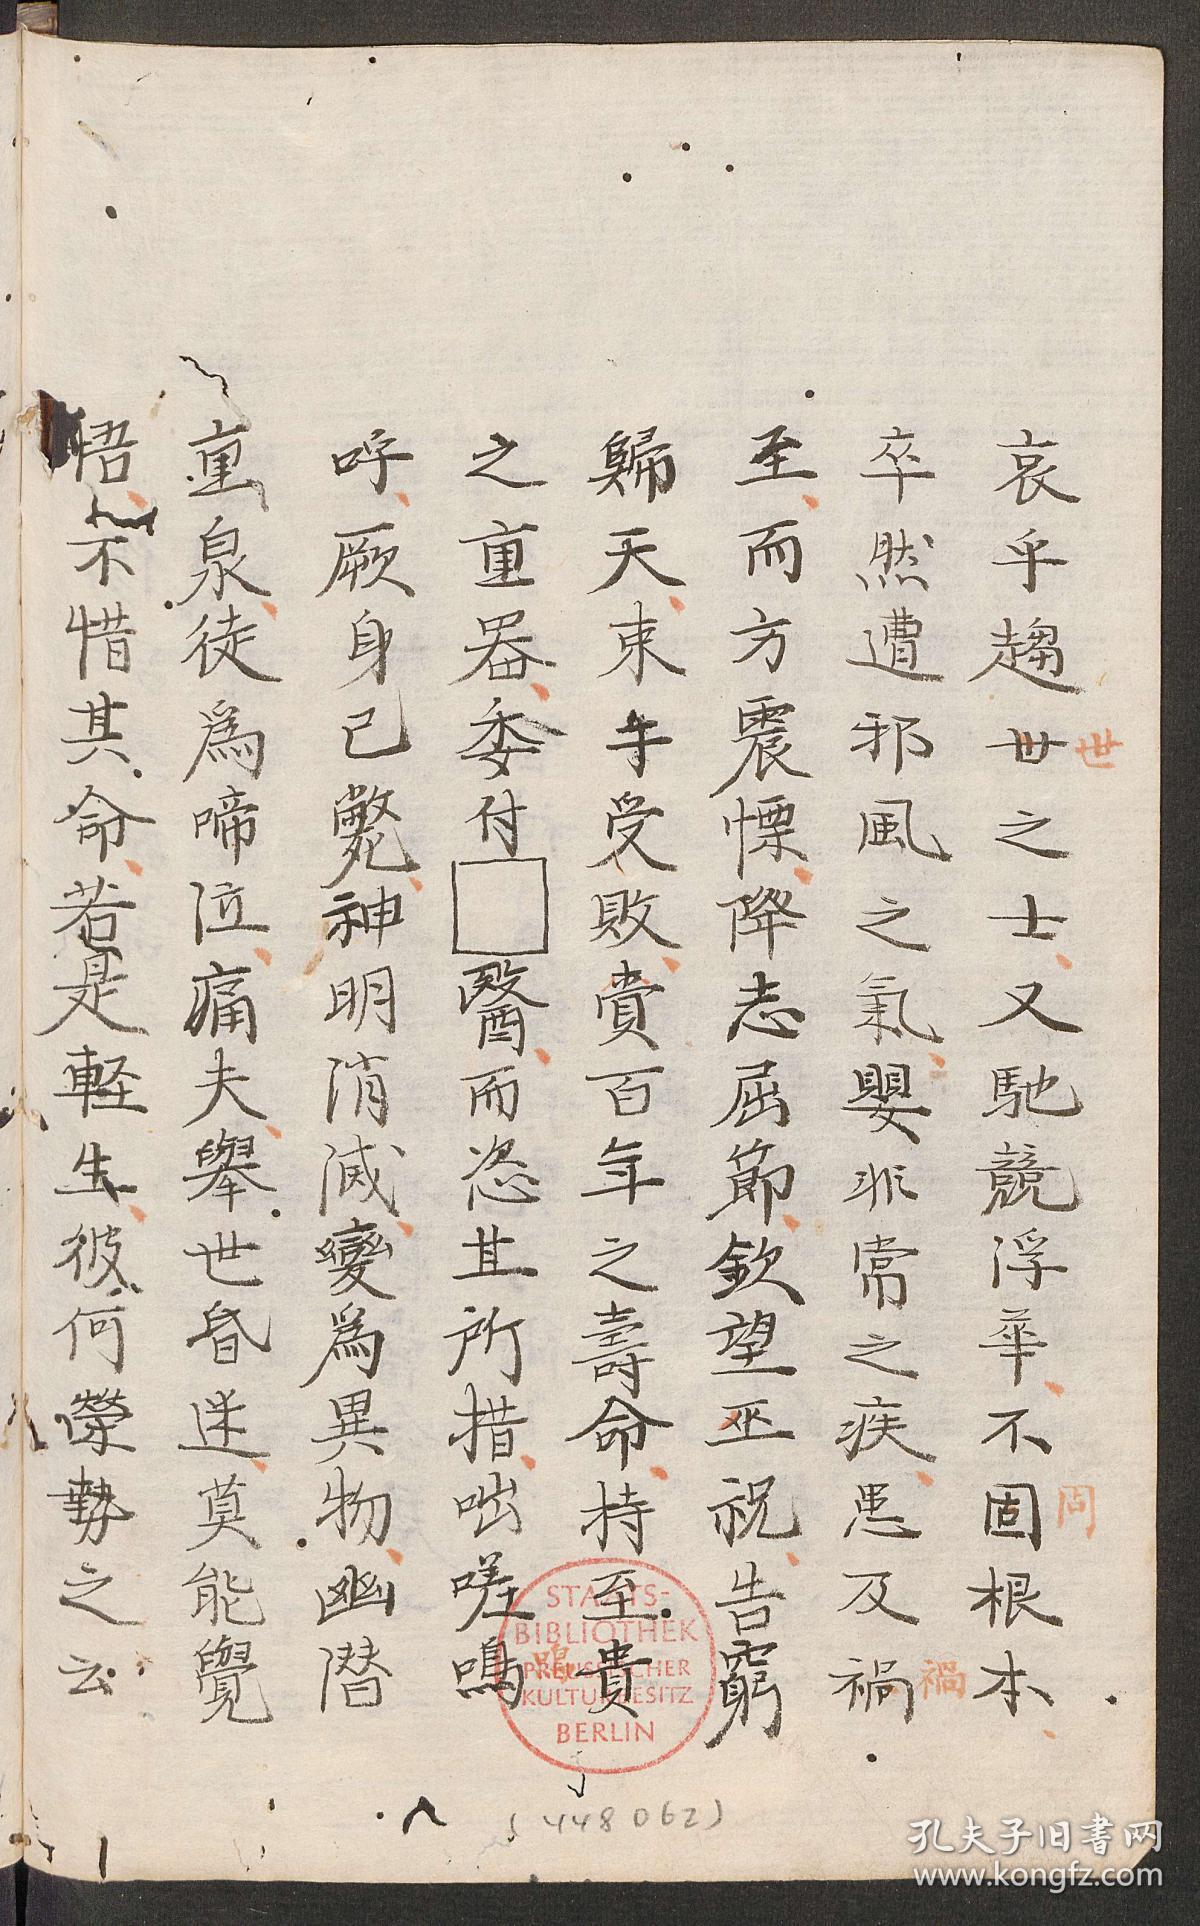 哀乎趨世之士又馳競浮華不固根本
世
固
卒然遭邪風之氣嬰非常之疾患及禍
禍
至而方震慄降志屈節欽望巫祝告窮
歸天束手受敗賫百年之壽命持至貴
之重器委付□醫而恣其所措咄嗟嗚
嗚
呼厥身已斃神明消滅變爲異物幽潛
重泉徒爲啼泣痛夫舉世昏迷莫能覺
悟不惜其命若是輕生彼何榮勢之云
STAATS-
BIBLIOTHEK
PREUSSISCHER
KULTURBESITZ
BERLIN
(448062)
孔夫子旧书网
www.kongfz.com